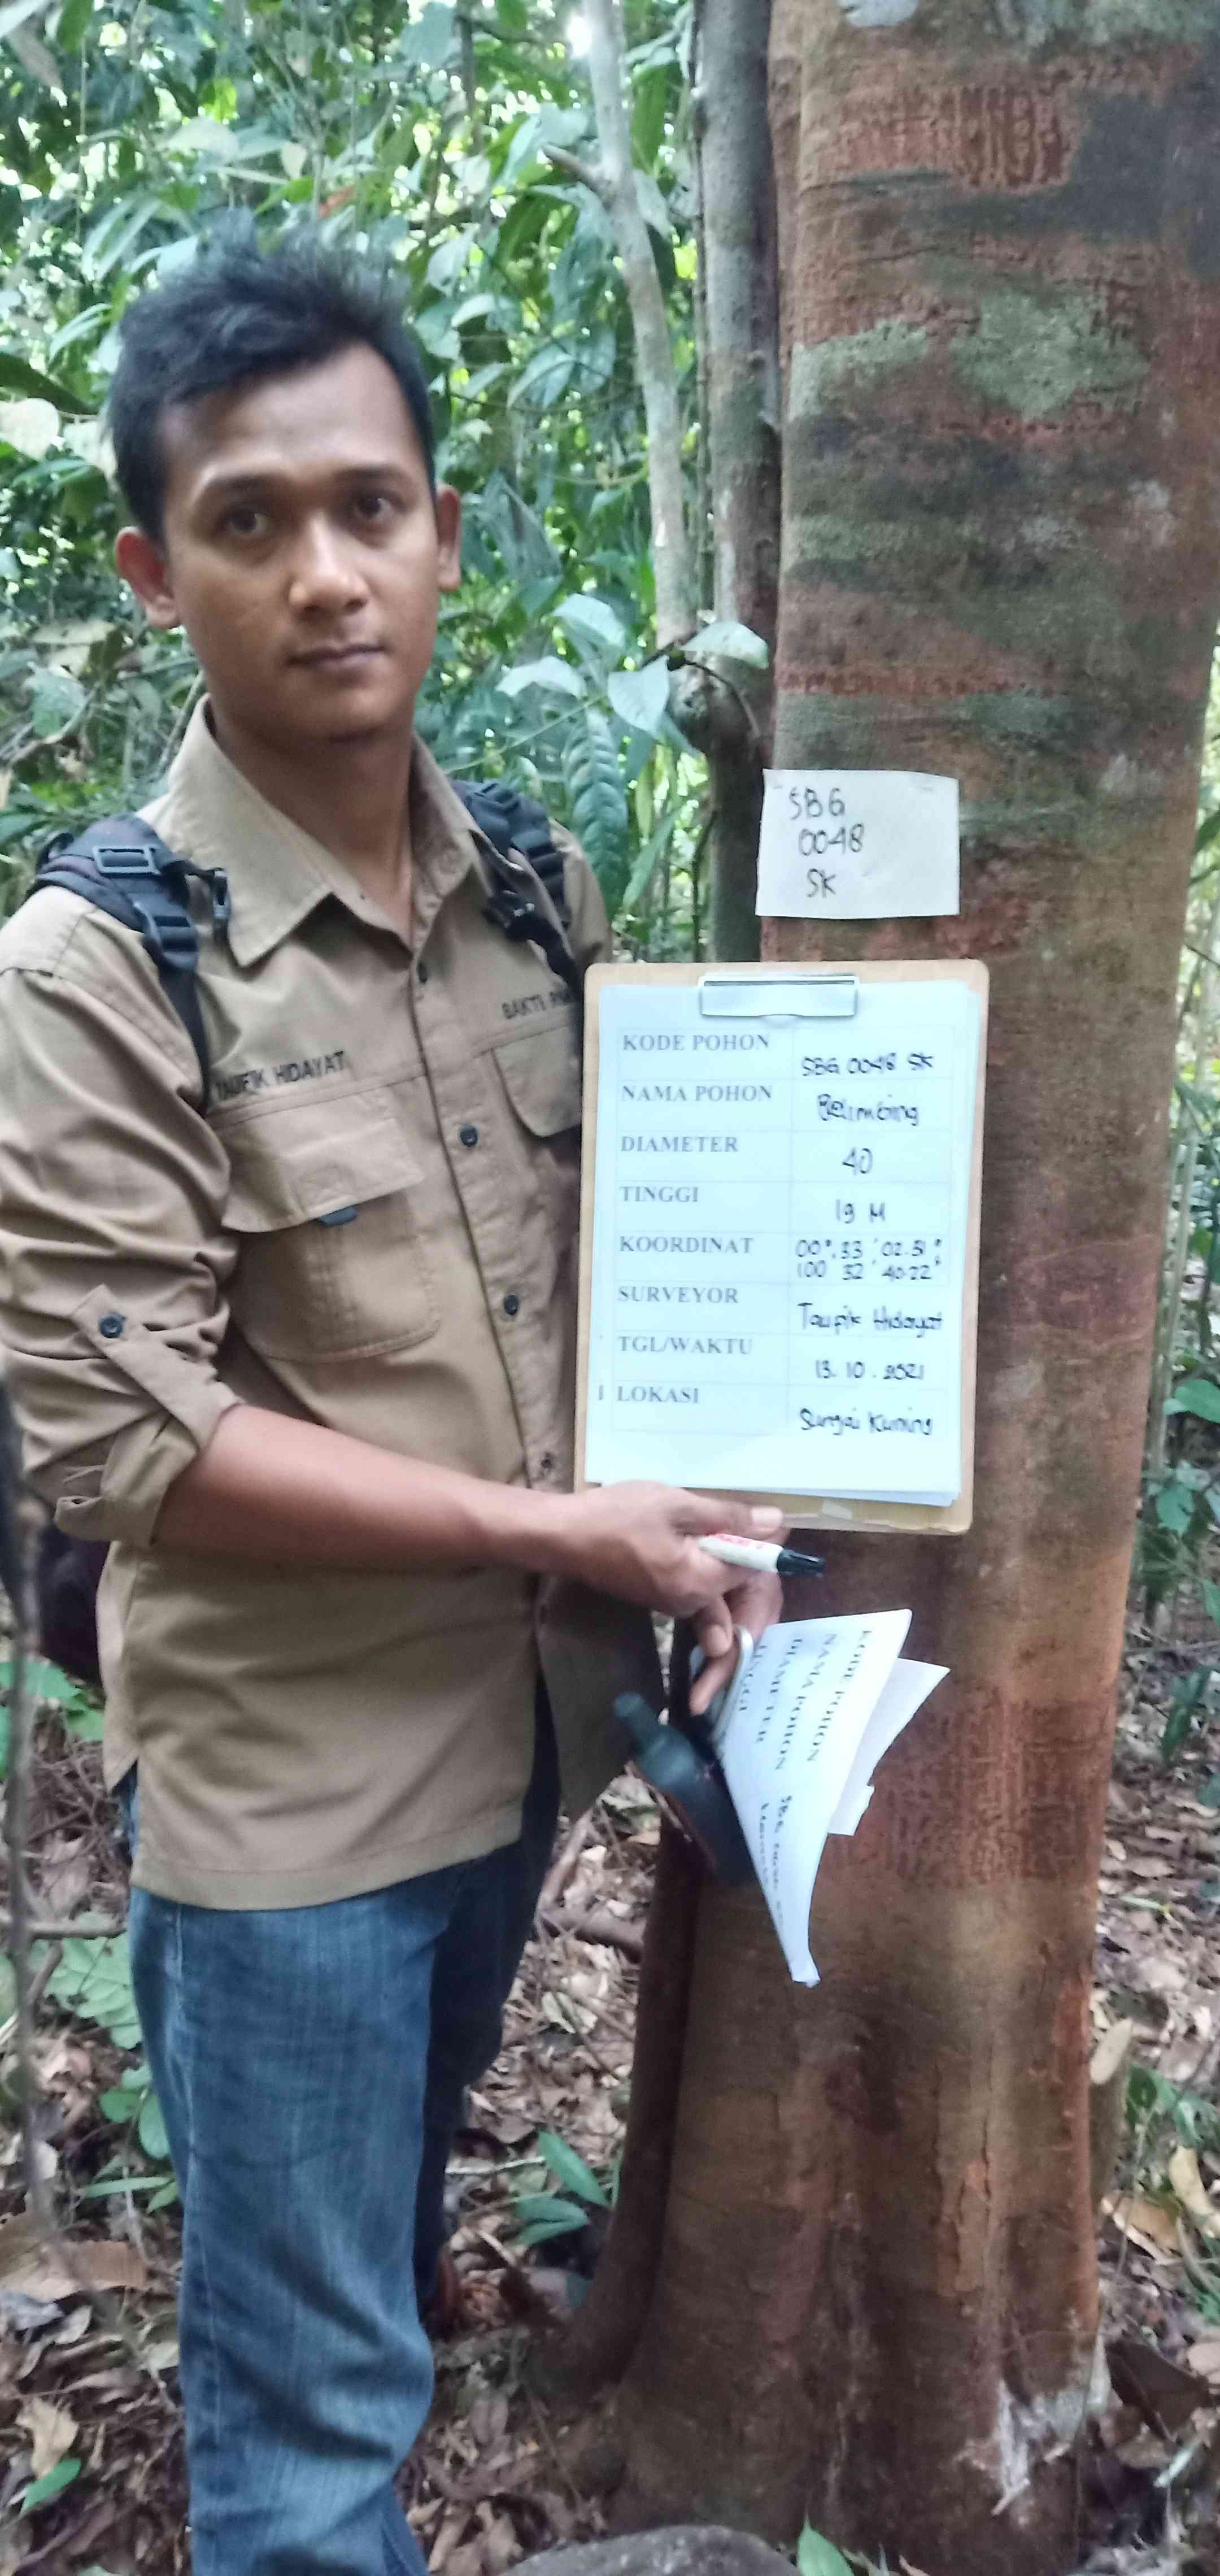 SBG
0048
SK
TAUFIK HIDAYAT
BAKTI
KODE POHON SBG 0048 SK
NAMA POHON Belimbing
DIAMETER 40
TINGGI 19 M
KOORDINAT 00°.33 '02.31"
100 32 '40.22"
SURVEYOR Taufik Hidayat
TGL/WAKTU 13.10.2021
LOKASI Sungai Kuning
KODE POHON
NAMA POHON
DIAMETER
TINGGI